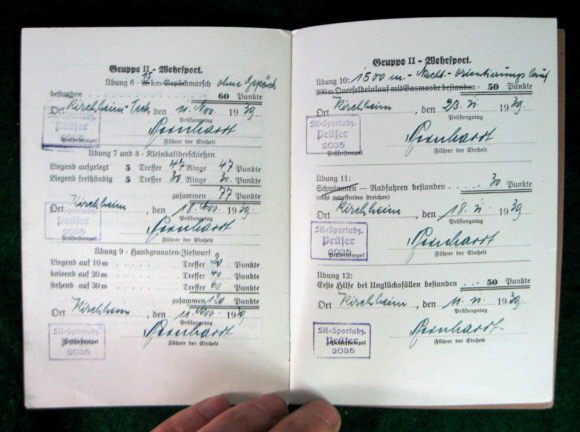 Gruppe II - Wehrsport.
Übung 6 · 15 km-Gepäckmarsch ohne Gepäck
bestanden . . . . . . . . . . 60 Punkte
Ort Kirchheim-Teck, den 11. Nov. 1939
Prüfungstag
SA-Sportabz. Prüfer 2035
Prüferstempel
Führer der Einheit
Übung 7 und 8 · Kleinkaliberschießen
Liegend aufgelegt 5 Treffer 47 Ringe 47 Punkte
Liegend freihändig 5 Treffer 30 Ringe 30 Punkte
zusammen 77 Punkte
Ort Kirchheim, den 18. Nov. 1939
Prüfungstag
SA-Sportabz. Prüfer 2035
Prüferstempel
Führer der Einheit
Übung 9 · Handgranaten-Zielwurf
Liegend auf 10 m . . . . . Treffer Punkte
knieend auf 20 m . . . . . Treffer 40 Punkte
stehend auf 30 m . . . . . Treffer 60 Punkte
zusammen 120 Punkte
Ort Kirchheim, den 11. Nov. 1939
Prüfungstag
SA-Sportabz. Prüfer 2035
Prüferstempel
Führer der Einheit
Gruppe II - Wehrsport.
Übung 10: 1500 m - Nacht-Orientierungslauf
Querfeldeinlauf mit Gasmaske bestanden · 50 Punkte
Ort Kirchheim, den 2/3. XI. 1939
Prüfungstag
SA-Sportabz. Prüfer 2035
Prüferstempel
Führer der Einheit
Übung 11:
Schwimmen - Radfahren bestanden . . . . 30 Punkte
Ort Kirchheim, den 18. XI. 1939
Prüfungstag
SA-Sportabz. Prüfer 2035
Prüferstempel
Führer der Einheit
Übung 12:
Erste Hilfe bei Unglücksfällen bestanden . . . . 50 Punkte
Ort Kirchheim, den 11. XI. 1939
Prüfungstag
SA-Sportabz. Prüfer 2035
Prüferstempel
Führer der Einheit